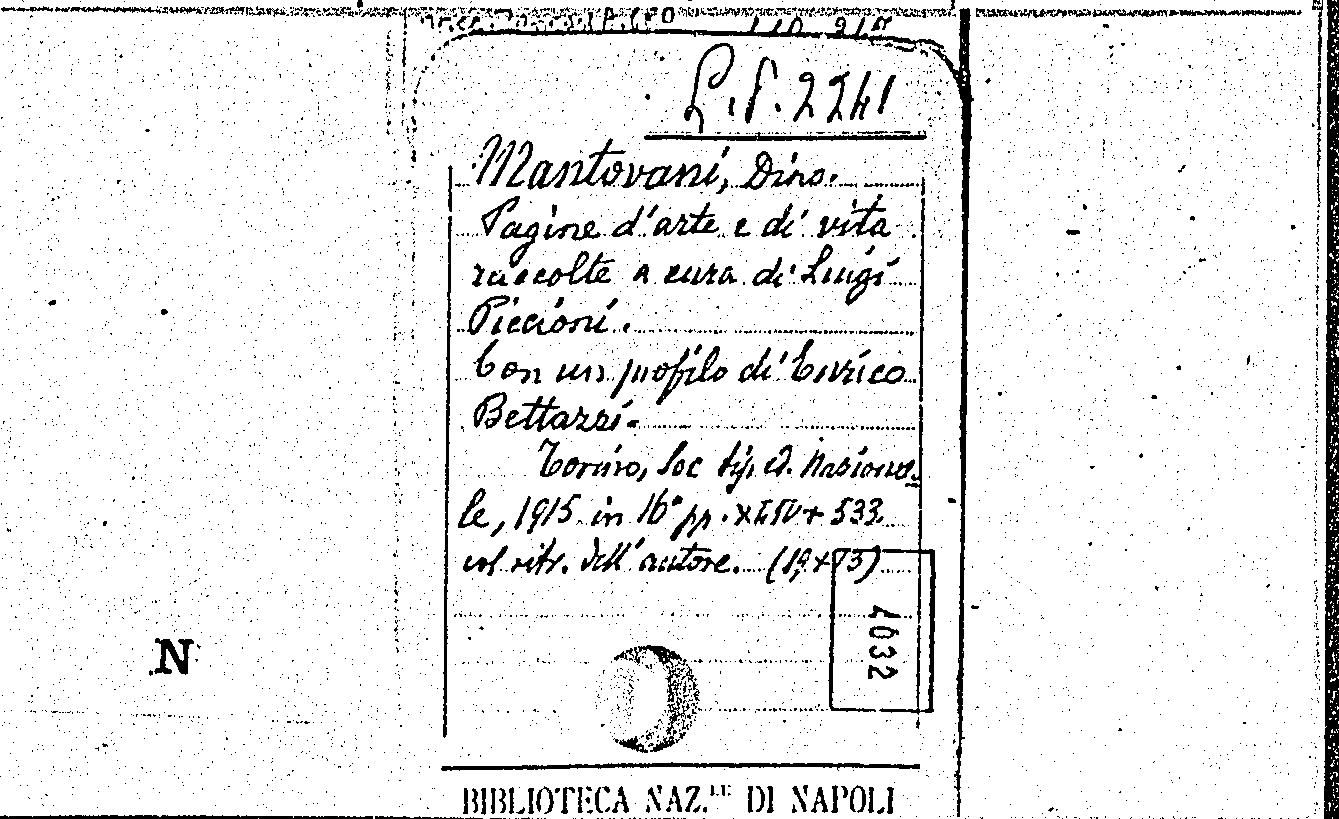 L.P. 2241
Mantovani, Dino.
Pagine d'arte e di vita
raccolte a cura di Luigi
Piccioni.
Con un profilo di Enrico
Bettazzi.
Torino, Soc tip. ed. Naziona-
le, 1915 in 16° pp. XLIV + 533
col ritr. dell'autore. (19,×13)
4032
N
BIBLIOTECA NAZ.LE DI NAPOLI